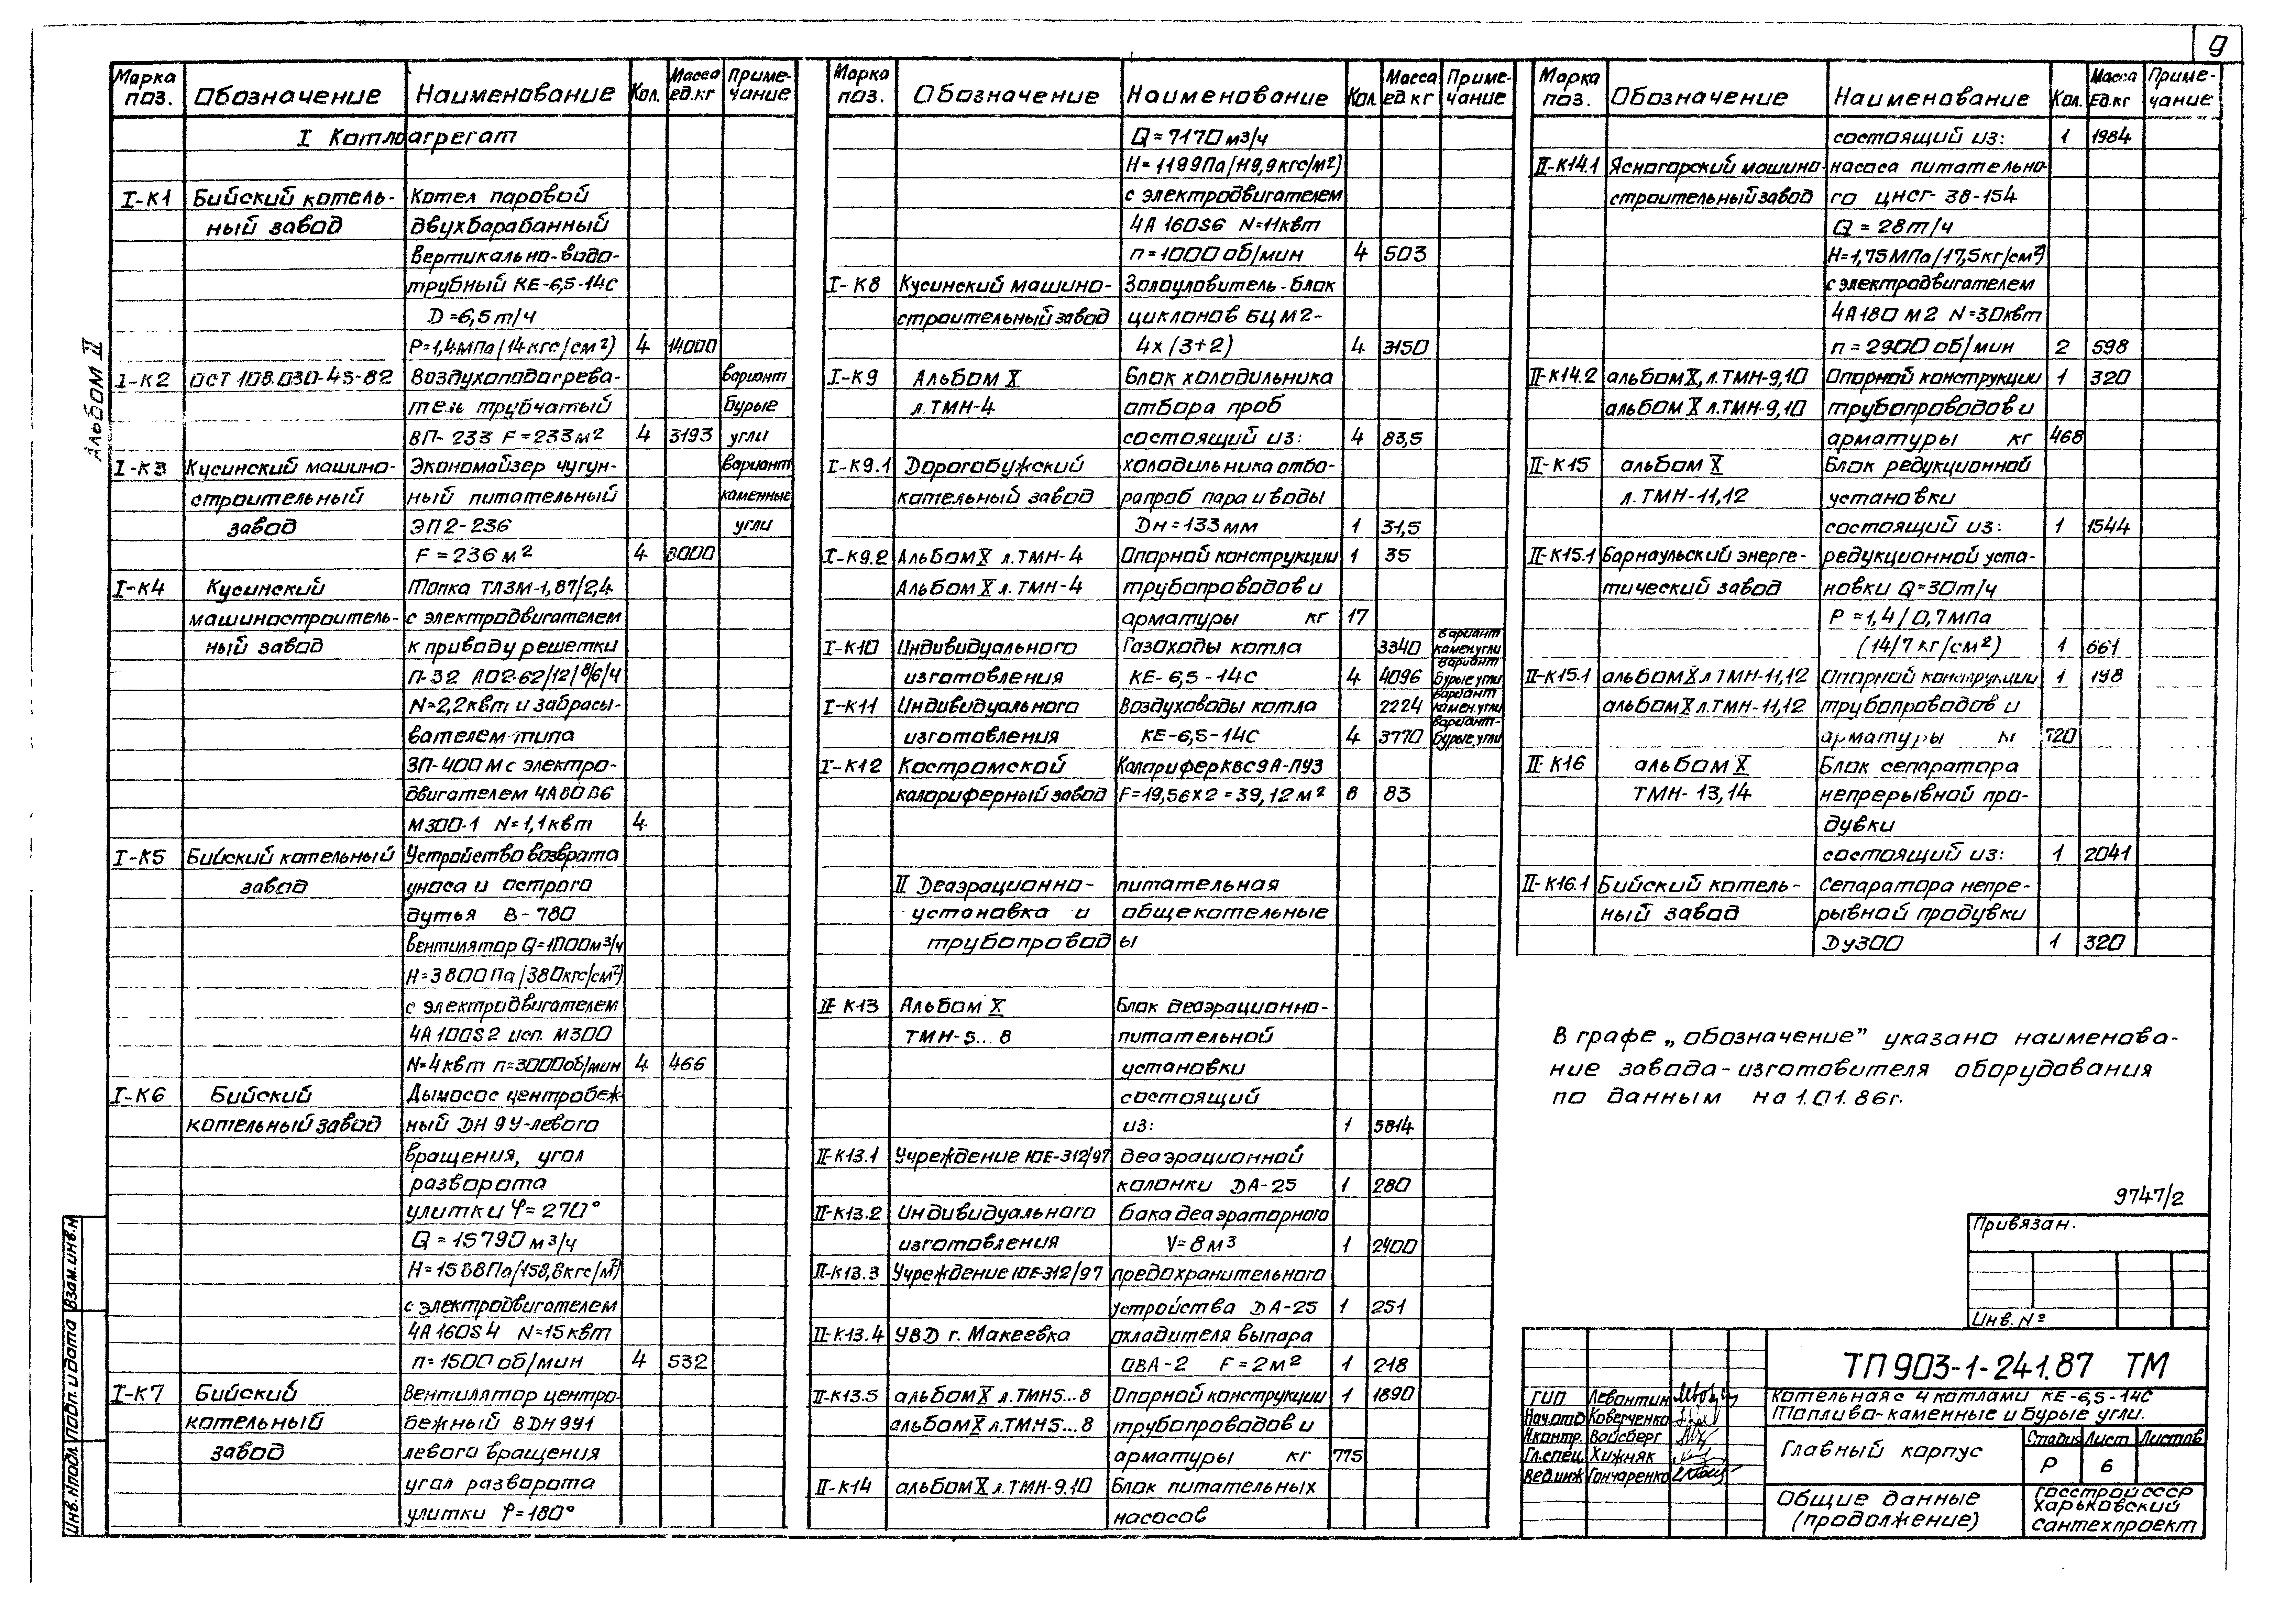 9
Альбом II
Марка поз. Обозначение Наименование Кол. Масса ед.кг Примечание
I Котлоагрегат
I-К1 Бийский котель- Котел паровой
ный завод двухбарабанный
вертикально-водо-
трубный КЕ-6,5-14С
D=6,5т/ч
Р=1,4МПа(14кгс/см²) 4 14000
I-К2 ОСТ 108.030-45-82 Воздухоподогрева- вариант
тель трубчатый бурые
ВП-233 F=233м² 4 3193 угли
I-К3 Кусинский машино- Экономайзер чугун- вариант
строительный ный питательный каменные
завод ЭП2-236 угли
F=236м² 4 8000
I-К4 Кусинский Топка ТЛЗМ-1,87/2,4
машиностроитель- с электродвигателем
ный завод к приводу решетки
П-32 АО2-62/12/8/6/4
N=2,2квт и забрасы-
вателем типа
ЗП-400М с электро-
двигателем 4А80В6
М300-1 N=1,1квт 4
I-К5 Бийский котельный Устройство возврата
завод уноса и острого
дутья В-780
вентилятор Q=1000м³/ч
Н=3800Па/380кгс/см²)
с электродвигателем
4А100S2 исп. М300
N=4квт n=3000об/мин 4 466
I-К6 Бийский Дымосос центробеж-
котельный завод ный ДН 9У-левого
вращения, угол
разворота
улитки φ=270°
Q=15790м³/ч
Н=1588Па/158,8кгс/м²)
с электродвигателем
4А160S4 N=15квт
n=1500об/мин 4 532
I-К7 Бийский Вентилятор центро-
котельный бежный ВДН9У1
завод левого вращения
угол разворота
улитки φ=180°
Марка поз. Обозначение Наименование Кол. Масса ед кг Примечание
Q=7170м³/ч
Н=1199Па/119,9кгс/м²)
с электродвигателем
4А160S6 N=11квт
n=1000об/мин 4 503
I-К8 Кусинский машино- Золоуловитель-блок
строительный завод циклонов БЦМ2-
4х(3+2) 4 3150
I-К9 Альбом X Блок холодильника
л.ТМН-4 отбора проб
состоящий из: 4 83,5
I-К9.1 Дорогобужский холодильника отбо-
котельный завод ра проб пара и воды
Dн=133мм 1 31,5
I-К9.2 Альбом X л.ТМН-4 Опорной конструкции 1 35
Альбом X л.ТМН-4 трубопроводов и
арматуры кг 17
I-К10 Индивидуального Газоходы котла 3340 вариант камен.угли
изготовления КЕ-6,5-14С 4 4096 вариант бурые угли
I-К11 Индивидуального Воздуховоды котла 2224 вариант камен.угли
изготовления КЕ-6,5-14С 4 3770 вариант-бурые угли
I-К12 Костромской Калорифер КВС9А-ПУЗ
калориферный завод F=19,56х2=39,12м² 8 83
II Деаэрационно-питательная
установка и общекотельные
трубопроводы
II-К13 Альбом X Блок деаэрационно-
ТМН-5...8 питательной
установки
состоящий
из: 1 5814
II-К13.1 Учреждение ЮЕ-312/97 деаэрационной
колонки ДА-25 1 280
II-К13.2 Индивидуального бака деаэраторного
изготовления V=8м³ 1 2400
II-К13.3 Учреждение ЮЕ-312/97 предохранительного
устройства ДА-25 1 251
II-К13.4 УВД г. Макеевка охладителя выпара
ОВА-2 F=2м² 1 218
II-К13.5 альбом X л.ТМН5...8 Опорной конструкции 1 1890
альбом X л.ТМН5...8 трубопроводов и
арматуры кг 775
II-К14 альбом X л.ТМН-9.10 Блок питательных
насосов
Марка поз. Обозначение Наименование Кол. Масса Ед.кг Примечание
состоящий из: 1 1984
II-К14.1 Ясногорский машино- насоса питательно-
строительный завод го ЦНСГ-38-154
Q=28т/ч
Н=1,75МПа/17,5кг/см²)
с электродвигателем
4А180М2 N=30квт
n=2900об/мин 2 598
II-К14.2 альбом X, л.ТМН-9,10 Опорной конструкции 1 320
альбом X л.ТМН-9,10 трубопроводов и
арматуры кг 468
II-К15 альбом X Блок редукционной
л.ТМН-11,12 установки
состоящий из: 1 1544
II-К15.1 Барнаульский энерге- редукционной уста-
тический завод новки Q=30т/ч
Р=1,4/0,7МПа
(14/7кг/см²) 1 661
II-К15.1 альбом X л ТМН-11,12 Опорной конструкции 1 198
альбом X л.ТМН-11,12 трубопроводов и
арматуры кг 720
II-К16 альбом X Блок сепаратора
ТМН-13,14 непрерывной про-
дувки
состоящий из: 1 2041
II-К16.1 Бийский котель- Сепаратора непре-
ный завод рывной продувки
Ду300 1 320
В графе „обозначение” указано наименова-
ние завода-изготовителя оборудования
по данным на 1.01.86г.
9747/2
Привязан.
Инв. №
ТП 903-1-241.87 ТМ
Котельная с 4 котлами КЕ-6,5-14С
Топливо-каменные и бурые угли.
ГИП Левантин
Нач.отд Коверченко
Н.контр. Вайсберг
Гл.спец. Хижняк
Вед.инж Гончаренко
Главный корпус
Стадия Лист Листов
Р 6
Общие данные
(продолжение)
Госстрой СССР
Харьковский
Сантехпроект
Инв.№подл. Подп. и дата Взам.инв.№